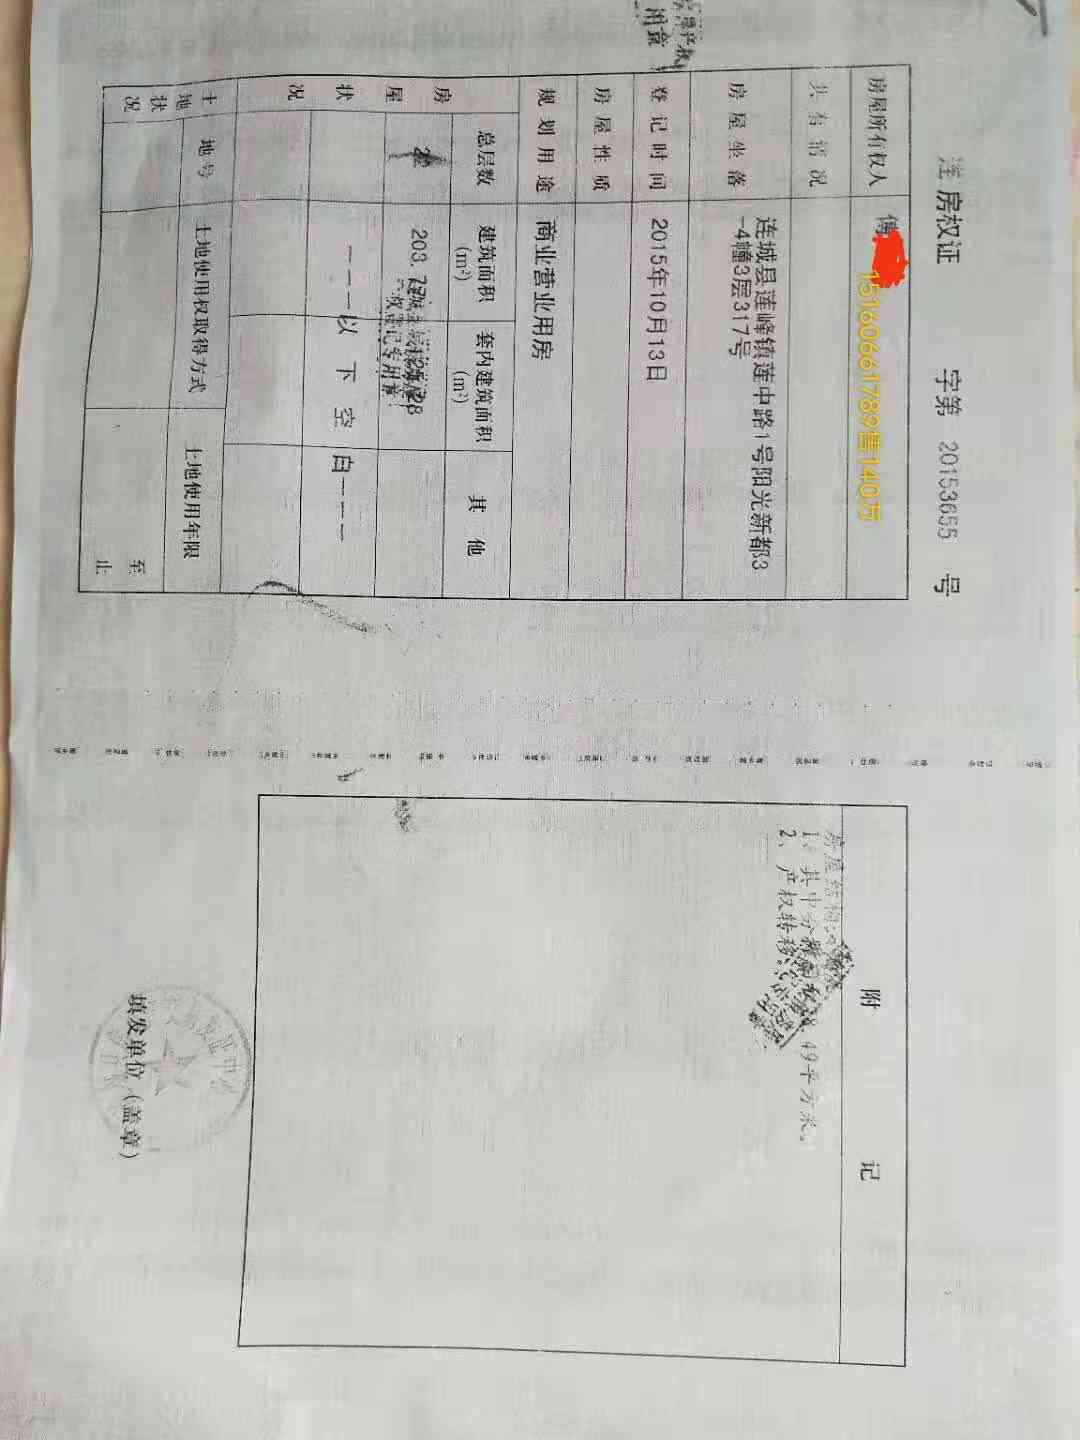 房权证
字第 20153655 号
房屋所有权人
傅
15160661789售140万
共有情况
房屋坐落
连城县莲峰镇莲中路1号阳光新都3
-4幢3层317号
登记时间
2015年10月13日
房屋性质
规划用途
商业营业用房
房屋状况
总层数
建筑面积
(m²)
套内建筑面积
(m²)
其他
203.77
———以下空白———
土地状况
地号
土地使用权取得方式
土地使用年限
至
止
附记
房屋结构:
1、其中分摊
49平方米。
2、产权转移。
填发单位（盖章）